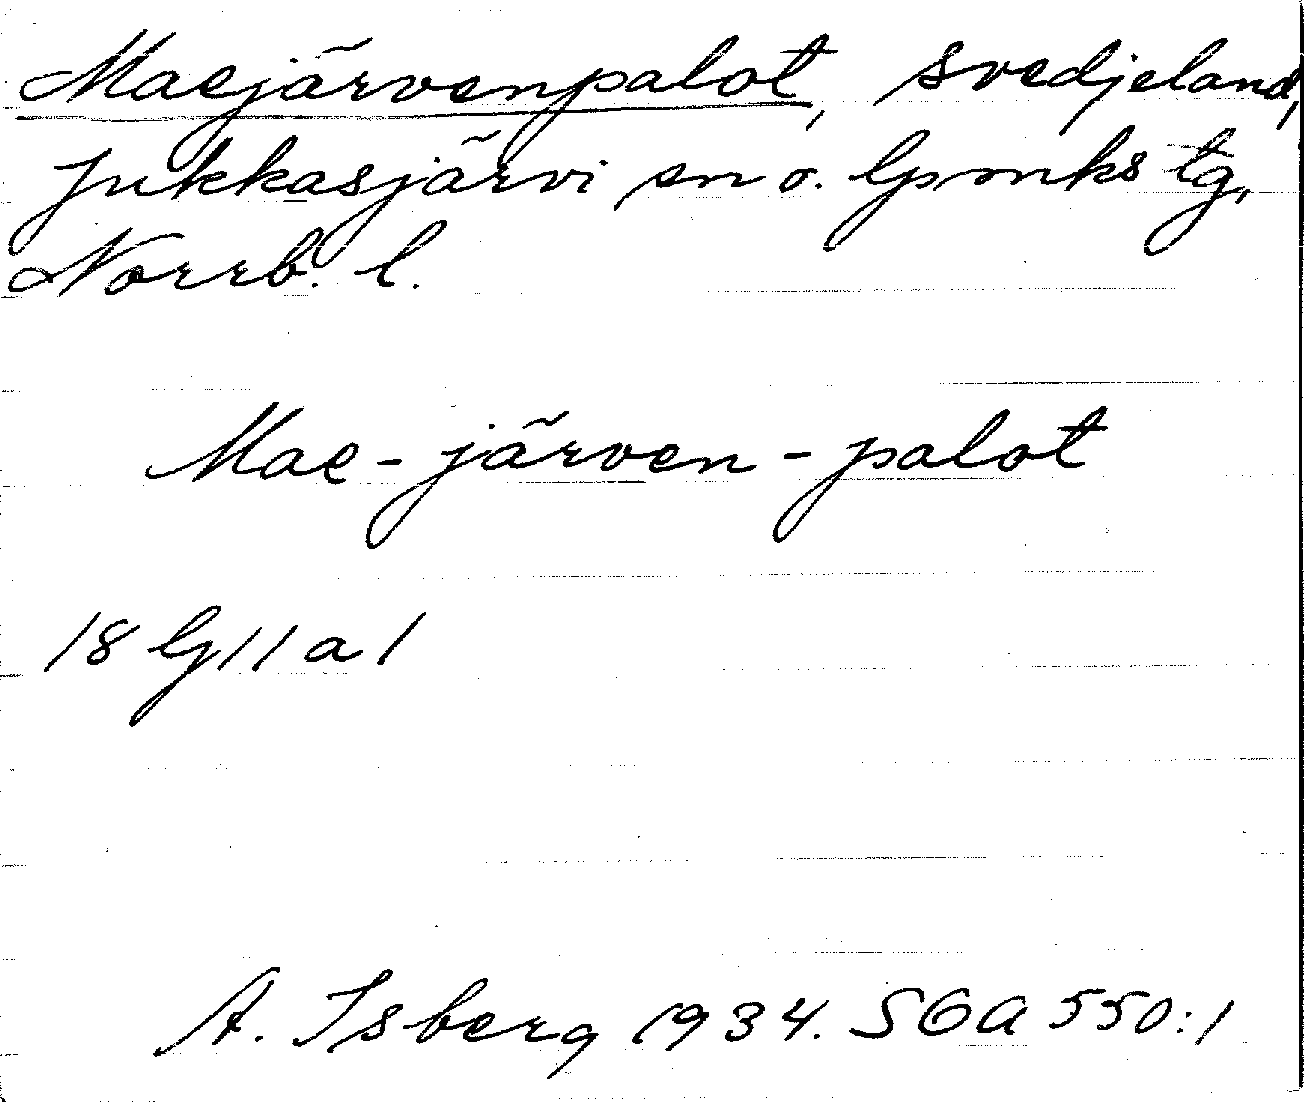 Maejärvenpalot, svedjeland,
Jukkasjärvi sn o. lpmks tg,
Norrb. l.
Mae-järven-palot
18 g 11 a 1
A. Isberg 1934. SOA 550:1